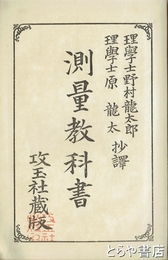 理學士野村龍太郎
理學士原龍太 抄譯
測量教科書
攻玉社藏版
とらや書房